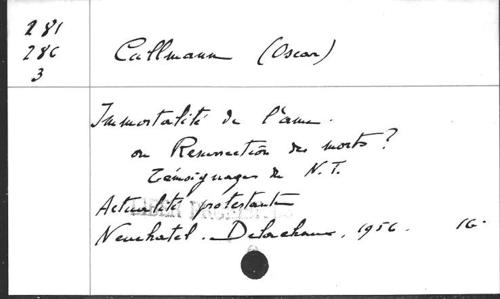 281
286
3
Cullmann (Oscar)
Immortalité de l'âme.
ou Resurrection des morts ?
Témoignages du N.T.
Actualité protestante
Neuchatel. Delachaux, 1956. 16-